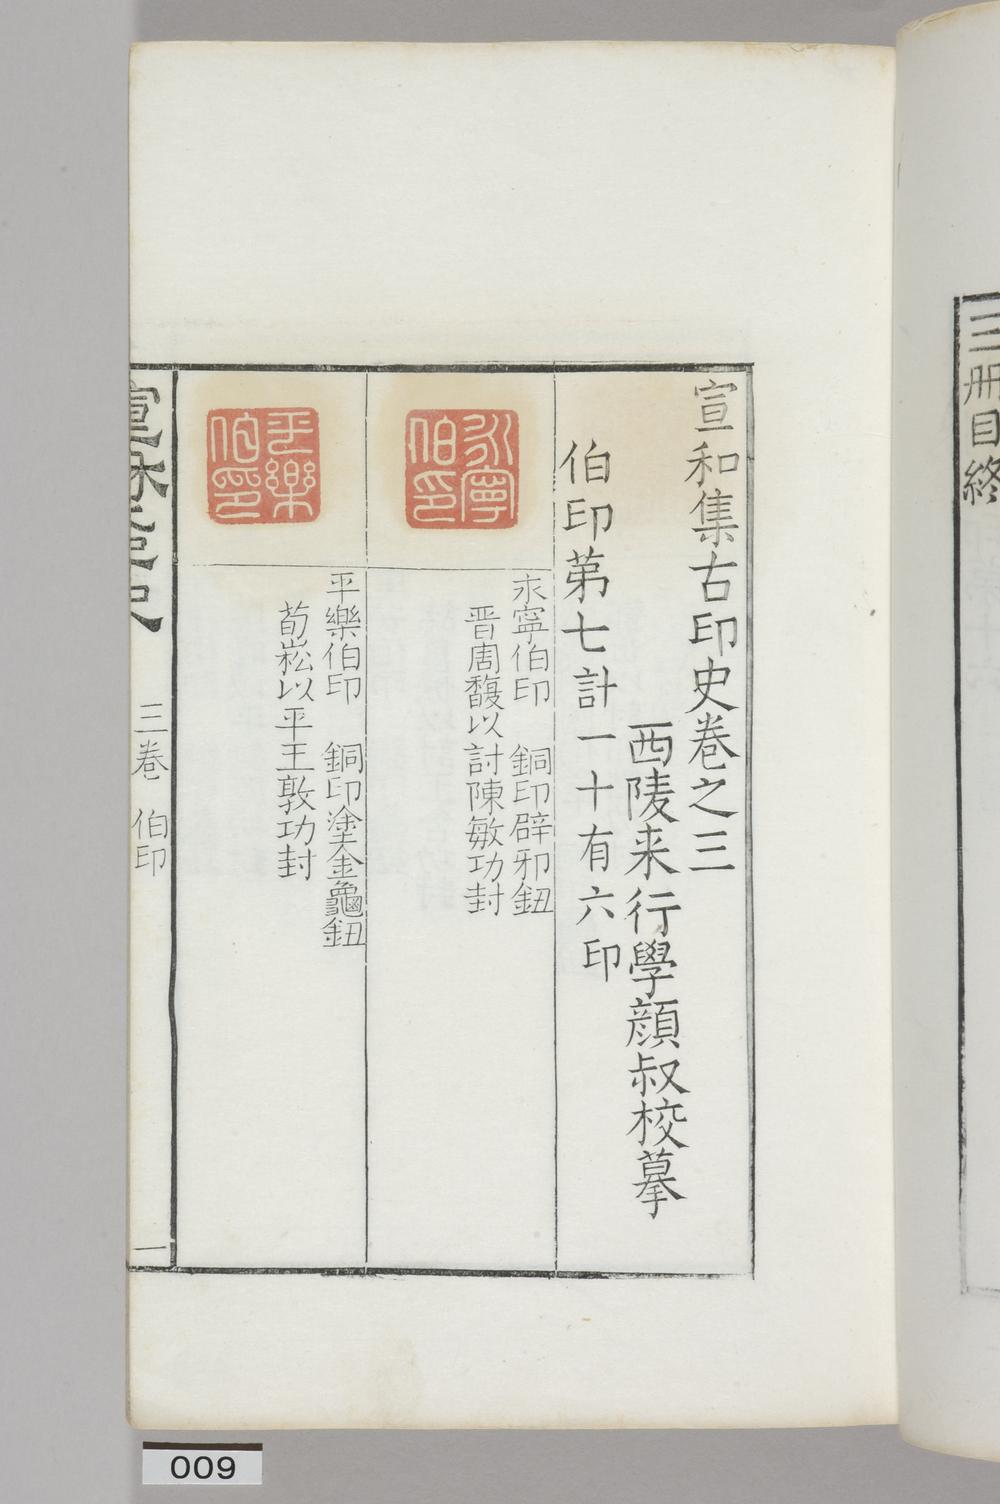 三册目終
宣和集古印史卷之三
西陵来行學顔叔校摹
伯印第七計一十有六印
永寧伯印
永寧伯印 銅印辟邪鈕
晋周馥以討陳敏功封
平樂伯印
平樂伯印 銅印塗金龜鈕
荀崧以平王敦功封
三卷 伯印
一
009